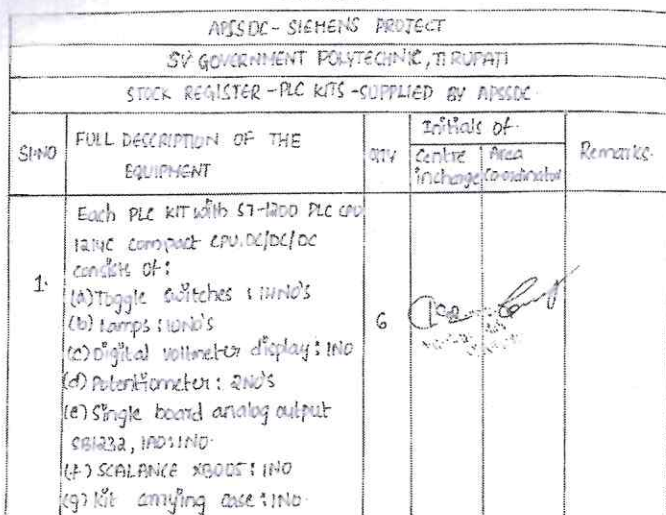 APSSDC - SIEMENS PROJECT
SV GOVERNMENT POLYTECHNIC, TIRUPATI
STOCK REGISTER - PLC KITS - SUPPLIED BY APSSDC.
SI.NO FULL DESCRIPTION OF THE EQUIPMENT QTY Initials of. Remarks.
Centre incharge Area Co-ordinator
Each PLC KIT with S7-1200 PLC CPU
1214C compact CPU, DC/DC/DC
consists of:
1. (a) Toggle switches : 14NO's 6
(b) Lamps : 10NO's
(c) Digital voltmeter display : 1NO
(d) Potentiometer : 2NO's
(e) Single board analog output
SB1232, 1AO : 1NO.
(f) SCALANCE XB005 : 1NO
(g) Kit carrying case : 1NO.